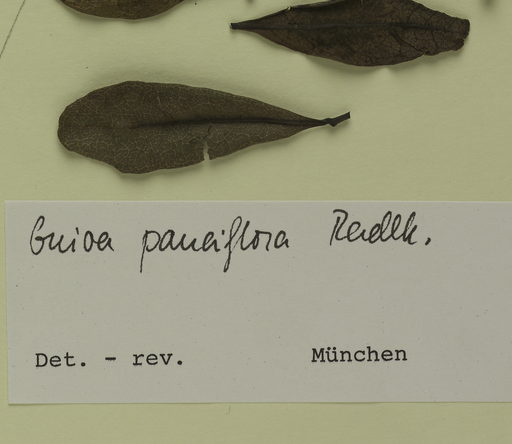 Guioa pauciflora Radlk.
Det. - rev. München